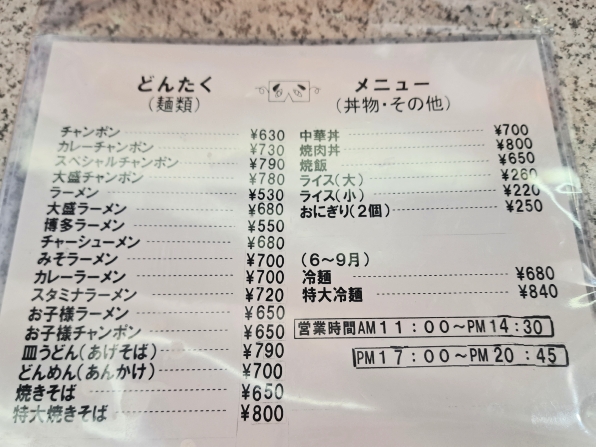 どんたく
(麺類)
チャンポン ¥630
カレーチャンポン ¥730
スペシャルチャンポン ¥790
大盛チャンポン ¥780
ラーメン ¥530
大盛ラーメン ¥680
博多ラーメン ¥550
チャーシューメン ¥680
みそラーメン ¥700
カレーラーメン ¥700
スタミナラーメン ¥720
お子様ラーメン ¥650
お子様チャンポン ¥650
皿うどん(あげそば) ¥790
どんめん(あんかけ) ¥700
焼きそば ¥650
特大焼きそば ¥800
メニュー
(丼物・その他)
中華丼 ¥700
焼肉丼 ¥800
焼飯 ¥650
ライス(大) ¥260
ライス(小) ¥220
おにぎり(2個) ¥250
(6〜9月)
冷麺 ¥680
特大冷麺 ¥840
営業時間AM11:00〜PM14:30
PM17:00〜PM20:45